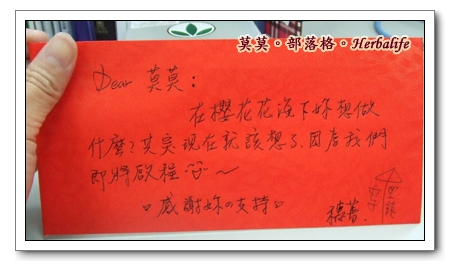 莫莫。部落格。Herbalife
Dear 莫莫：
在櫻花花海下妳想做
什麼？其實現在就該想了，因為我們
即將啟程 ～
感謝妳の支持